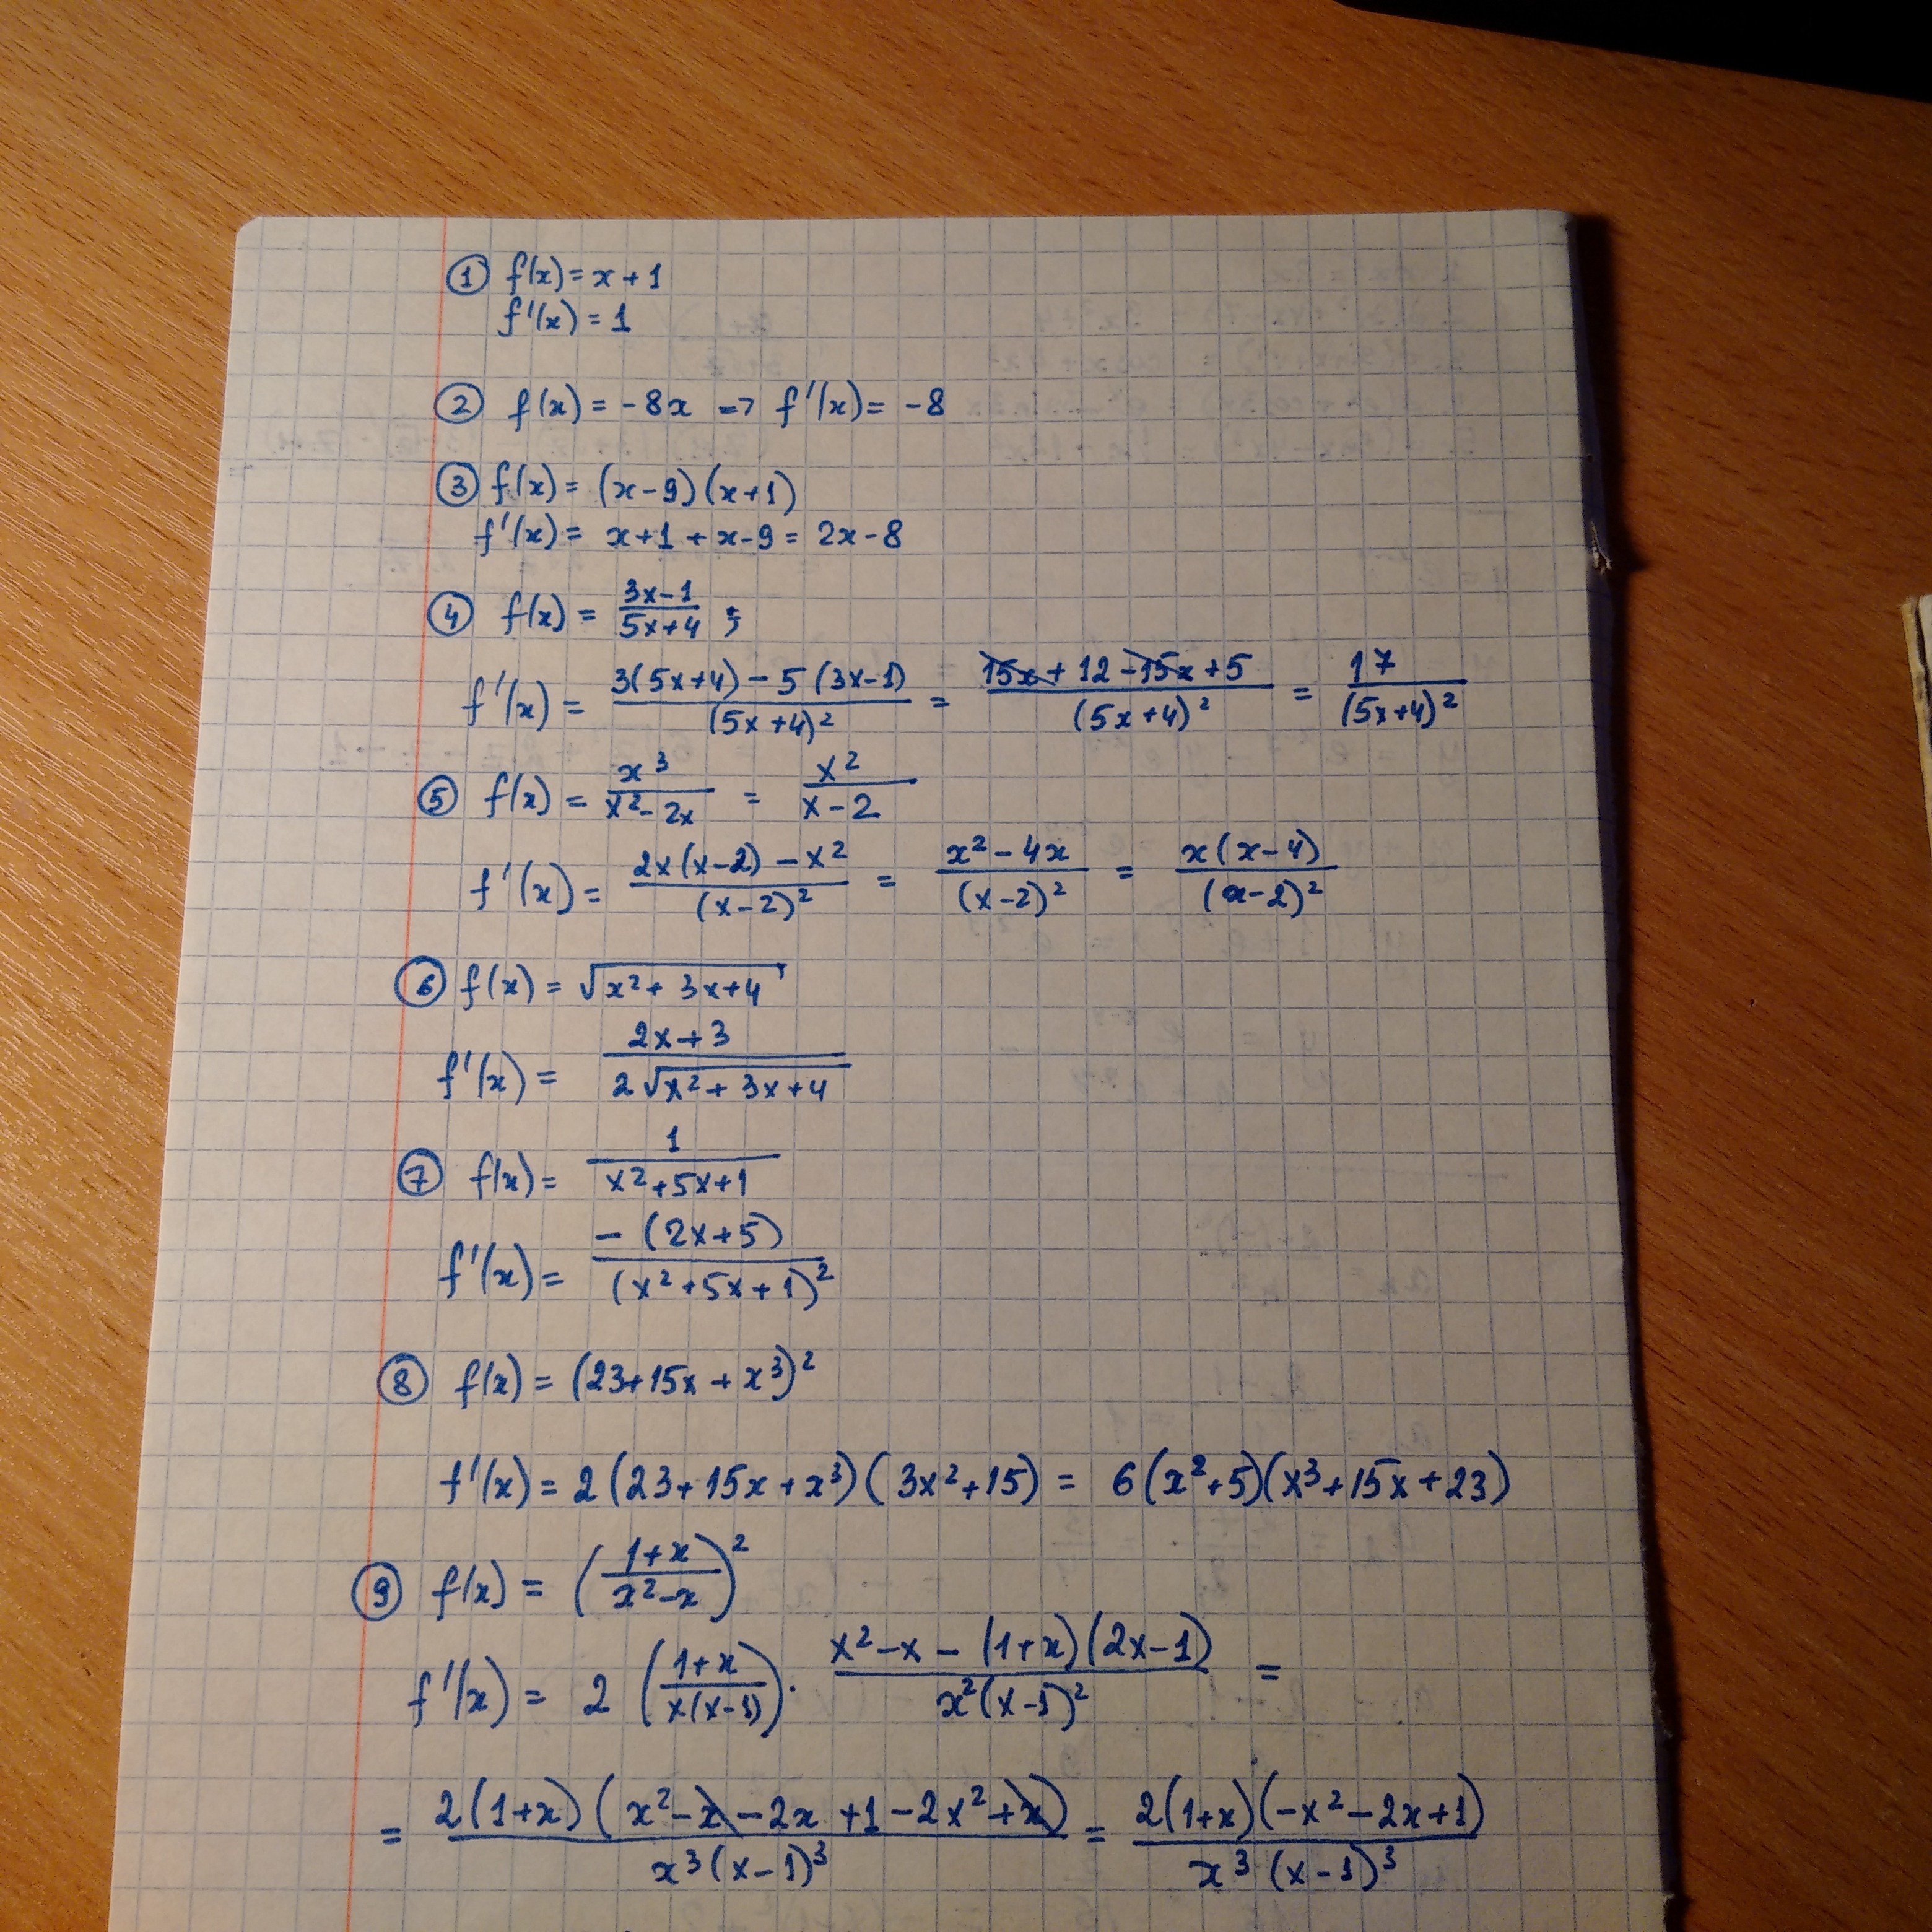 ① f(x) = x + 1
f'(x) = 1
② f(x) = -8x => f'(x) = -8
③ f(x) = (x-9)(x+1)
f'(x) = x+1 + x-9 = 2x-8
④ f(x) = (3x-1)/(5x+4) ;
f'(x) = (3(5x+4) - 5(3x-1))/((5x+4)²) = (15x + 12 - 15x + 5)/((5x+4)²) = 17/((5x+4)²)
⑤ f(x) = x³/(x²-2x) = x²/(x-2)
f'(x) = (2x(x-2) - x²)/((x-2)²) = (x² - 4x)/((x-2)²) = (x(x-4))/((x-2)²)
⑥ f(x) = √(x² + 3x + 4)
f'(x) = (2x+3)/(2√(x² + 3x + 4))
⑦ f(x) = 1/(x²+5x+1)
f'(x) = (-(2x+5))/((x²+5x+1)²)
⑧ f(x) = (23+15x + x³)²
f'(x) = 2(23+15x+x³)(3x²+15) = 6(x²+5)(x³+15x+23)
⑨ f(x) = ((1+x)/(x²-x))²
f'(x) = 2((1+x)/(x(x-1))) · (x²-x-(1+x)(2x-1))/(x²(x-1)²) =
= (2(1+x)(x²-x-2x+1-2x²+x))/(x³(x-1)³) = (2(1+x)(-x²-2x+1))/(x³(x-1)³)